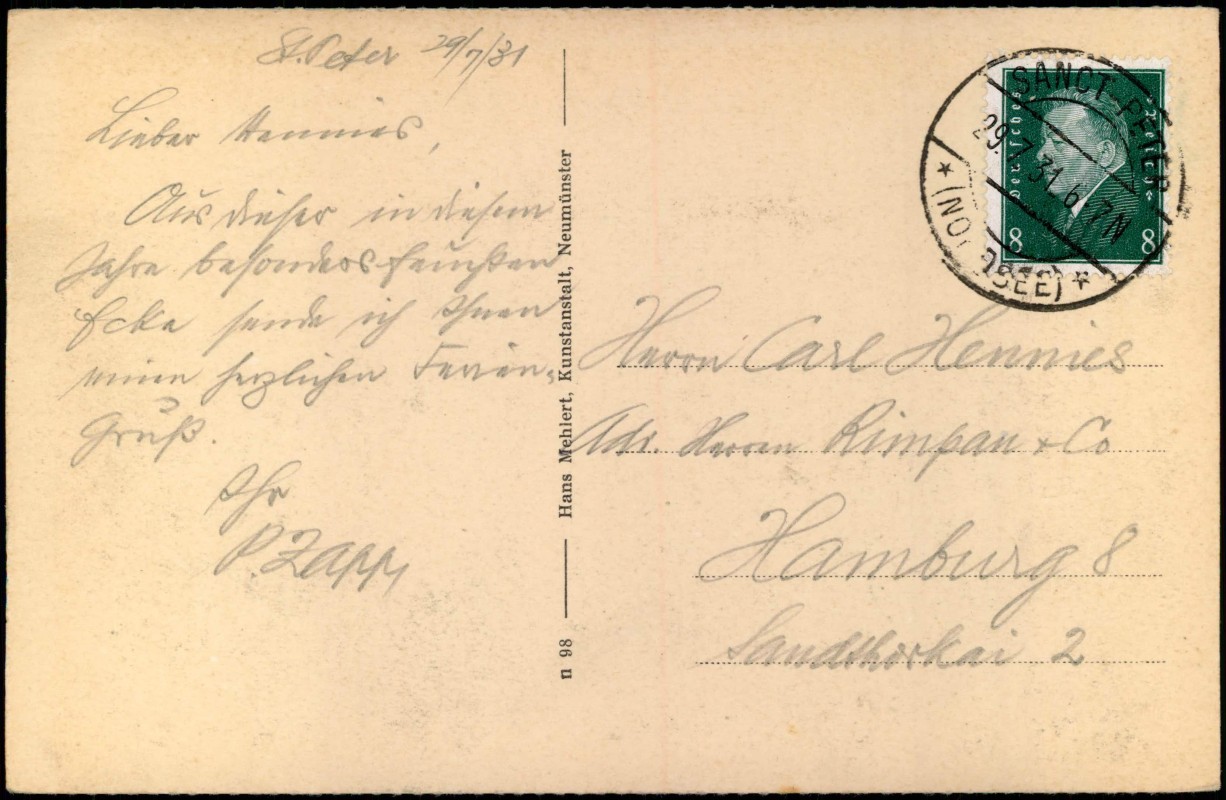 St. Peter 29/7/31
Lieber Hennies,
Aus dieser in diesem
Jahre besonders feuchten
Ecke sende ich Ihnen
einen herzlichen Ferien-
Gruß.
Ihr
P. Zapp
n 98 — Hans Mehlert, Kunstanstalt, Neumünster —
SANCT PETER
29.7.31.6-7N
* (NORDSEE) *
Deutsches Reich
8 8
Herrn Carl Hennies
Adr. Herren Rimpau & Co
Hamburg 8
Sandthorkai 2